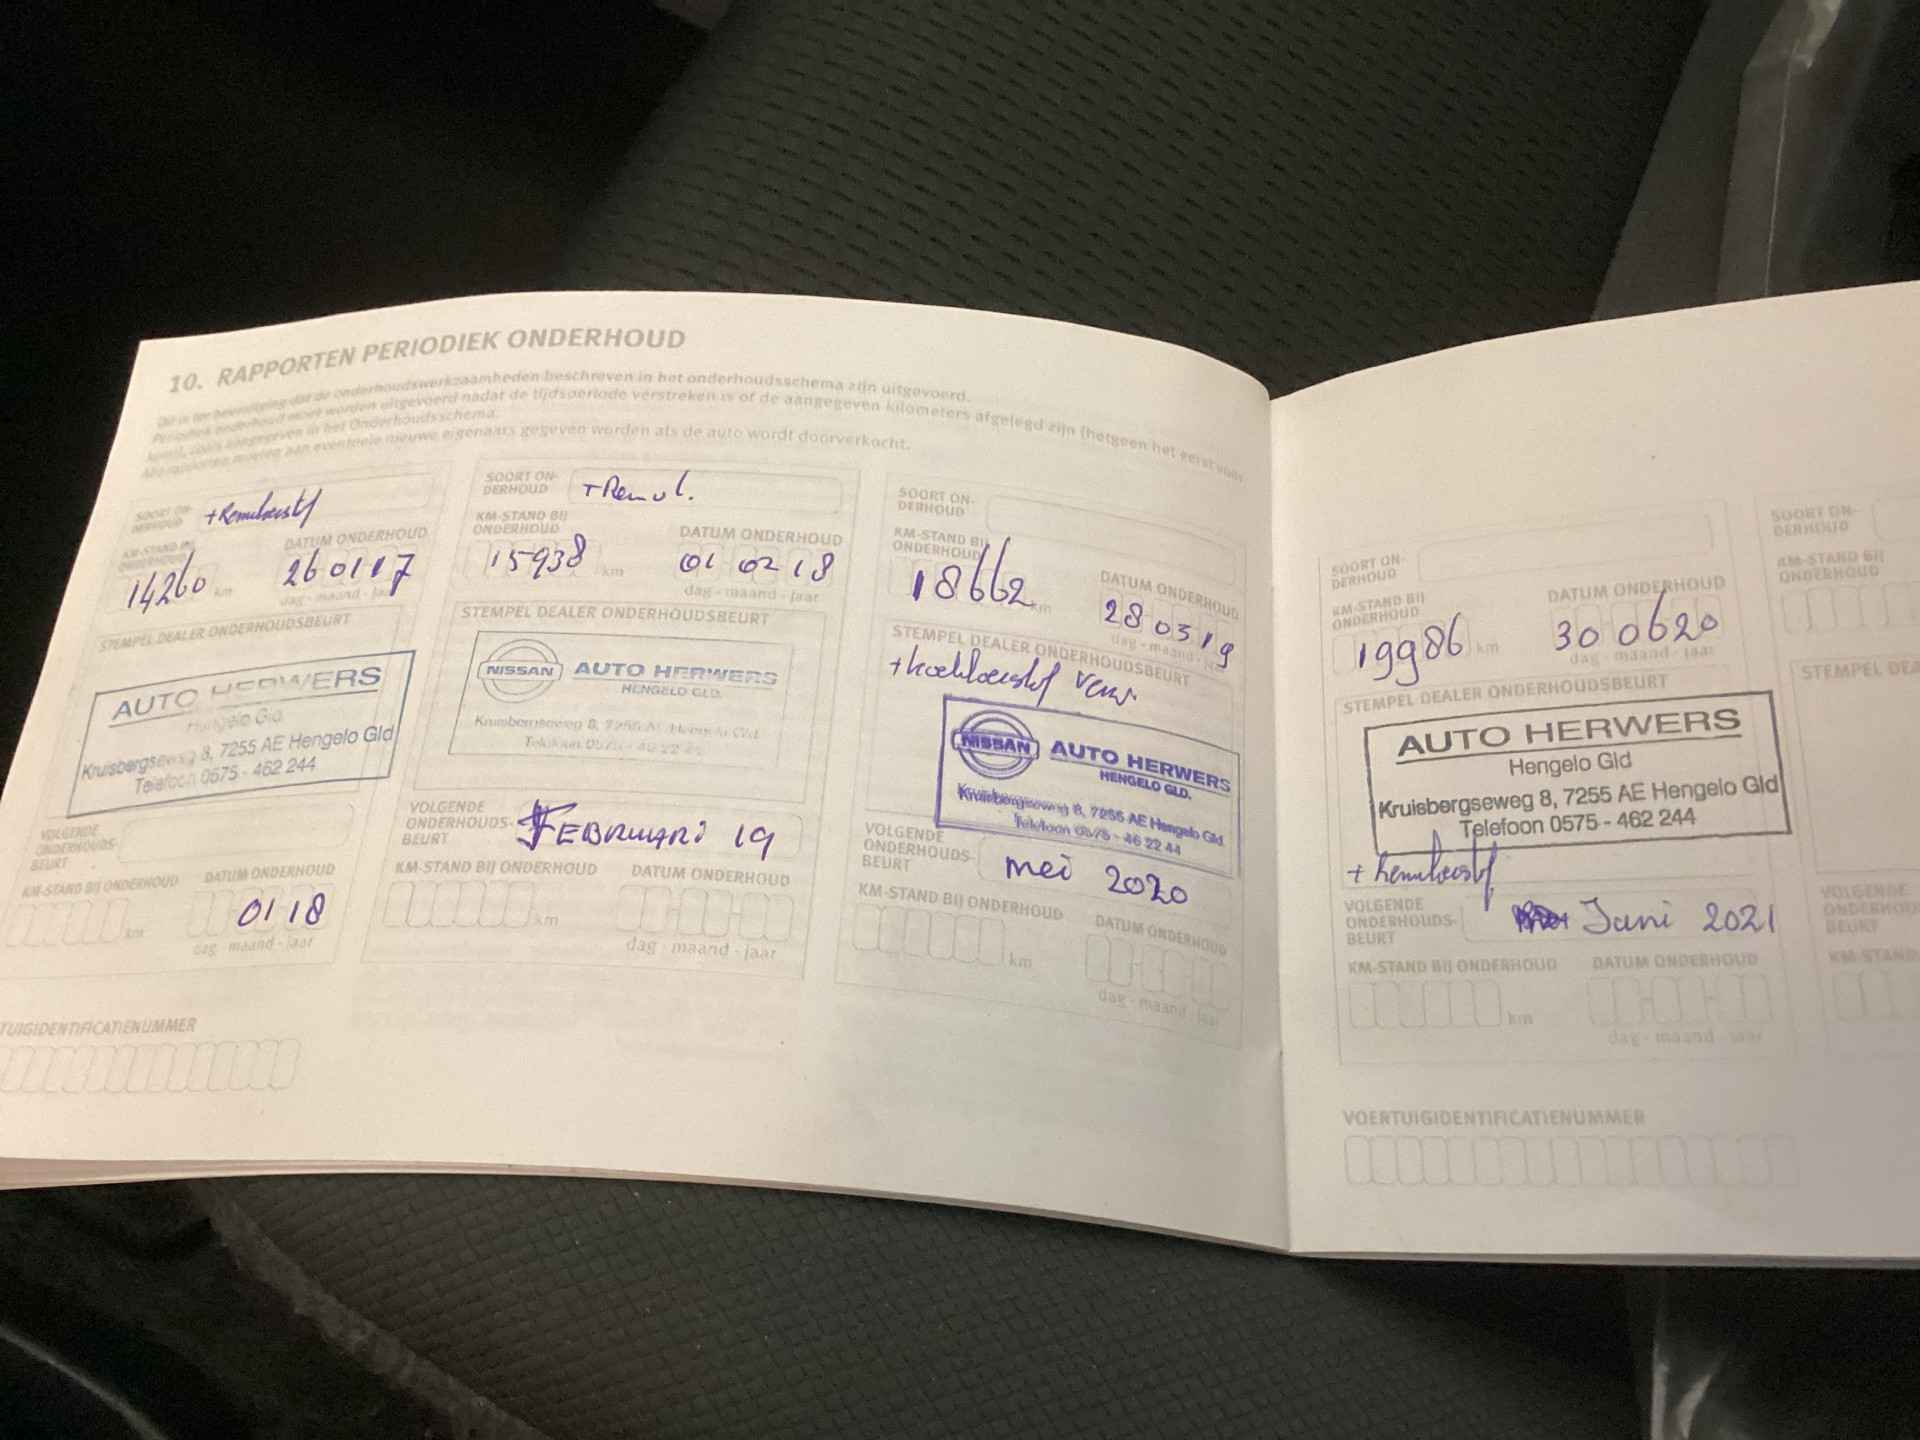 10. RAPPORTEN PERIODIEK ONDERHOUD
Dit is ter bevestiging dat de onderhoudswerkzaamheden beschreven in het onderhoudsschema zijn uitgevoerd.
Periodiek onderhoud moet worden uitgevoerd nadat de tijdsperiode verstreken is of de aangegeven kilometers afgelegd zijn (hetgeen het eerst voor
komt, zoals aangegeven in het Onderhoudsschema.
Alle rapporten moeten aan eventuele nieuwe eigenaars gegeven worden als de auto wordt doorverkocht.
SOORT ON-
DERHOUD
+ Remvloeistof
KM-STAND BIJ
ONDERHOUD
DATUM ONDERHOUD
14260 km
26 01 17
dag - maand - jaar
STEMPEL DEALER ONDERHOUDSBEURT
AUTO HERWERS
Hengelo Gld
Kruisbergseweg 8, 7255 AE Hengelo Gld
Telefoon 0575 - 462 244
VOLGENDE
ONDERHOUDS-
BEURT
KM-STAND BIJ ONDERHOUD
DATUM ONDERHOUD
km
01 18
dag - maand - jaar
SOORT ON-
DERHOUD
+ Remvl.
KM-STAND BIJ
ONDERHOUD
DATUM ONDERHOUD
15938 km
01 02 18
dag - maand - jaar
STEMPEL DEALER ONDERHOUDSBEURT
NISSAN
AUTO HERWERS
HENGELO GLD.
Kruisbergseweg 8, 7255 AE Hengelo Gld.
Telefoon 0575 - 46 22 44
VOLGENDE
ONDERHOUDS-
BEURT
FEBRUARI 19
KM-STAND BIJ ONDERHOUD
DATUM ONDERHOUD
km
dag - maand - jaar
SOORT ON-
DERHOUD
KM-STAND BIJ
ONDERHOUD
DATUM ONDERHOUD
18662 km
28 05 19
dag - maand - jaar
STEMPEL DEALER ONDERHOUDSBEURT
+ koelvloeistof verv
NISSAN
AUTO HERWERS
HENGELO GLD.
Kruisbergseweg 8, 7255 AE Hengelo Gld.
Telefoon 0575 - 46 22 44
VOLGENDE
ONDERHOUDS-
BEURT
mei 2020
KM-STAND BIJ ONDERHOUD
DATUM ONDERHOUD
km
dag - maand - jaar
TUIGIDENTIFICATIENUMMER
SOORT ON-
DERHOUD
KM-STAND BIJ
ONDERHOUD
DATUM ONDERHOUD
19986 km
30 06 20
dag - maand - jaar
STEMPEL DEALER ONDERHOUDSBEURT
AUTO HERWERS
Hengelo Gld
Kruisbergseweg 8, 7255 AE Hengelo Gld
Telefoon 0575 - 462 244
+ Remvloeistof
VOLGENDE
ONDERHOUDS-
BEURT
Juni 2021
KM-STAND BIJ ONDERHOUD
DATUM ONDERHOUD
km
dag - maand - jaar
VOERTUIGIDENTIFICATIENUMMER
SOORT ON-
DERHOUD
KM-STAND BIJ
ONDERHOUD
STEMPEL DEA
VOLGENDE
ONDERHOUD
BEURT
KM-STAND